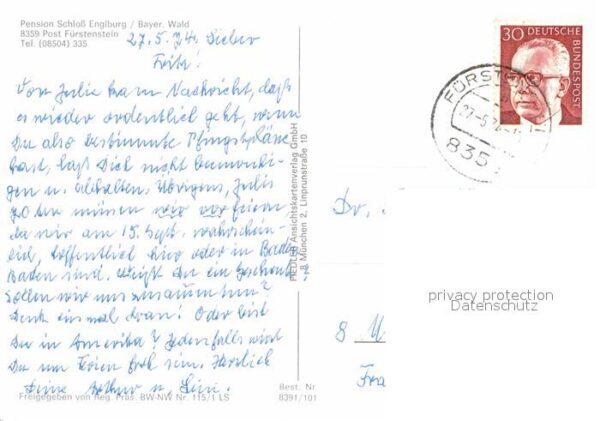 Pension Schloß Englburg / Bayer. Wald
8359 Post Fürstenstein
Tel. (08504) 335
27.5.74. Lieber
Fritz!
Von Julie kam Nachricht, daß
es wieder ordentlich geht, wenn
Du also bestimmte Pfingstpläne
hast, laß Dich nicht beunruhi-
gen u. abhalten. Übrigens, Julis
müssen wir vorfeiern
da wir am 15. Sept. wahrschein-
lich, hoffentlich hier oder in Baden
Baden sind. Weißt Du ein Geschenk?
Sollen wir uns zusammentun?
Denk einmal dran! Oder bist
Du in Amerika? Jedenfalls wirst
Du um Ferien froh sein. Herzlich
Deine Arthur u.
Freigegeben von Reg. Präs. BW-NW Nr. 115/1 LS
Best. Nr
8391/101
Ansichtskartenverlag GmbH
8 München 2, Linprunstraße 10
30 DEUTSCHE
BUNDESPOST
FÜRST
27-5.74
835
Dr.
privacy protection
Datenschutz
8 M
Fra